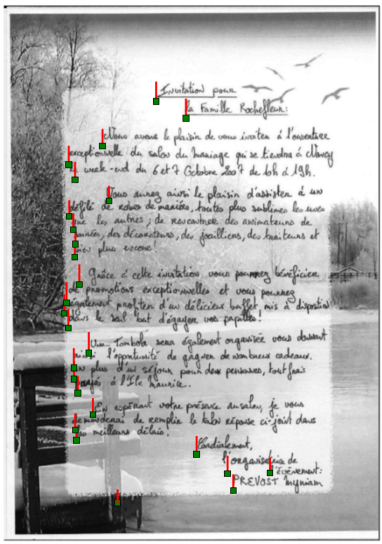 Invitation pour
la Famille Rochefleur:
Nous avons le plaisir de vous inviter à l'ouverture
exceptionnelle du salon du Mariage qui se tiendra à Nancy
le week-end du 6 et 7 Octobre 2007 de 10h à 19h.
Vous aurez ainsi le plaisir d'assister à un
défilé de robes de mariées, toutes plus sublimes les unes
que les autres; de rencontrer des animateurs de
soirées, des décorateurs, des joailliers, des traiteurs et
bien plus encore!
Grâce à cette invitation vous pourrez bénéficier
promotions exceptionnelles et vous pourrez
également profiter d'un délicieux buffet mis à disposition
dans le seul but d'égayer vos papilles!
Une Tombola sera également organisée vous donnant
ainsi l'opportunité de gagner de nombreux cadeaux.
plus d'un séjour pour deux personnes, tout frais
payés à l'Ile Maurice.
En espérant votre présence au salon, je vous
de remplir le talon réponse ci-joint dans
les meilleurs délais!
Cordialement,
l'organisatrice de
l'évènement:
PREVOST Myriam